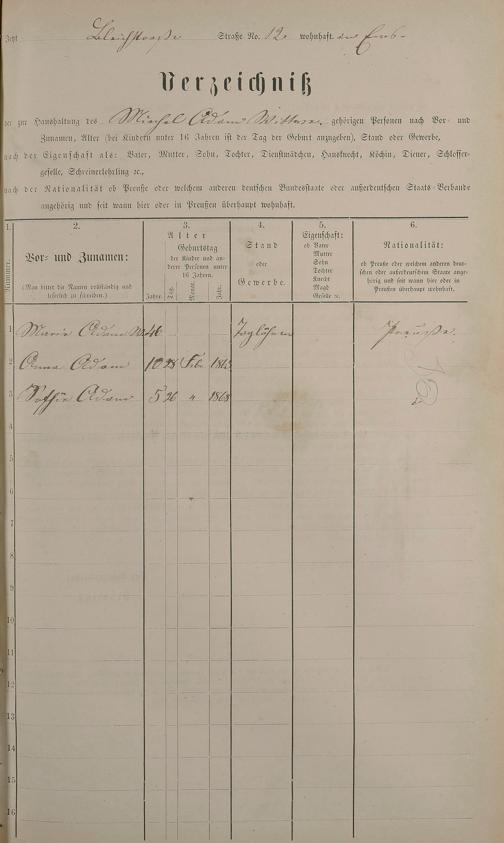 Jetzt Bleichstraße Straße No. 12. wohnhaft. in Ems.
Verzeichniß
der zur Haushaltung des Michel Adam Wittwe gehörigen Personen nach Vor- und
Zunamen, Alter (bei Kindern unter 16 Jahren ist der Tag der Geburt anzugeben), Stand oder Gewerbe,
nach der Eigenschaft als: Vater, Mutter, Sohn, Tochter, Dienstmädchen, Hausknecht, Köchin, Diener, Schlosser-
geselle, Schreinerlehrling ꝛc.,
nach der Nationalität ob Preuße oder welchem anderen deutschen Bundesstaate oder außerdeutschen Staats-Verbande
angehörig und seit wann hier oder in Preußen überhaupt wohnhaft.
1. 2. 3. 4. 5. 6.
Nummer.
Vor- und Zunamen:
(Man bittet die Namen vollständig und
leserlich zu schreiben.)
Alter
Geburtstag
der Kinder und an-
derer Personen unter
16 Jahren.
Jahre. Tag. Monat. Jahr.
Stand
oder
Gewerbe.
Eigenschaft:
ob Vater
Mutter
Sohn
Tochter
Knecht
Magd
Geselle ꝛc.
Nationalität:
ob Preuße oder welchem anderen deut-
schen oder außerdeutschen Staate ange-
hörig und seit wann hier oder in
Preußen überhaupt wohnhaft.
1 Maria Adam 46 Taglöhnerin Preuße.
2 Anna Adam 10 28 Feb. 1863
3 Sofhie Adam 5 26 " 1868
4
5
6
7
8
9
10
11
12
13
14
15
16